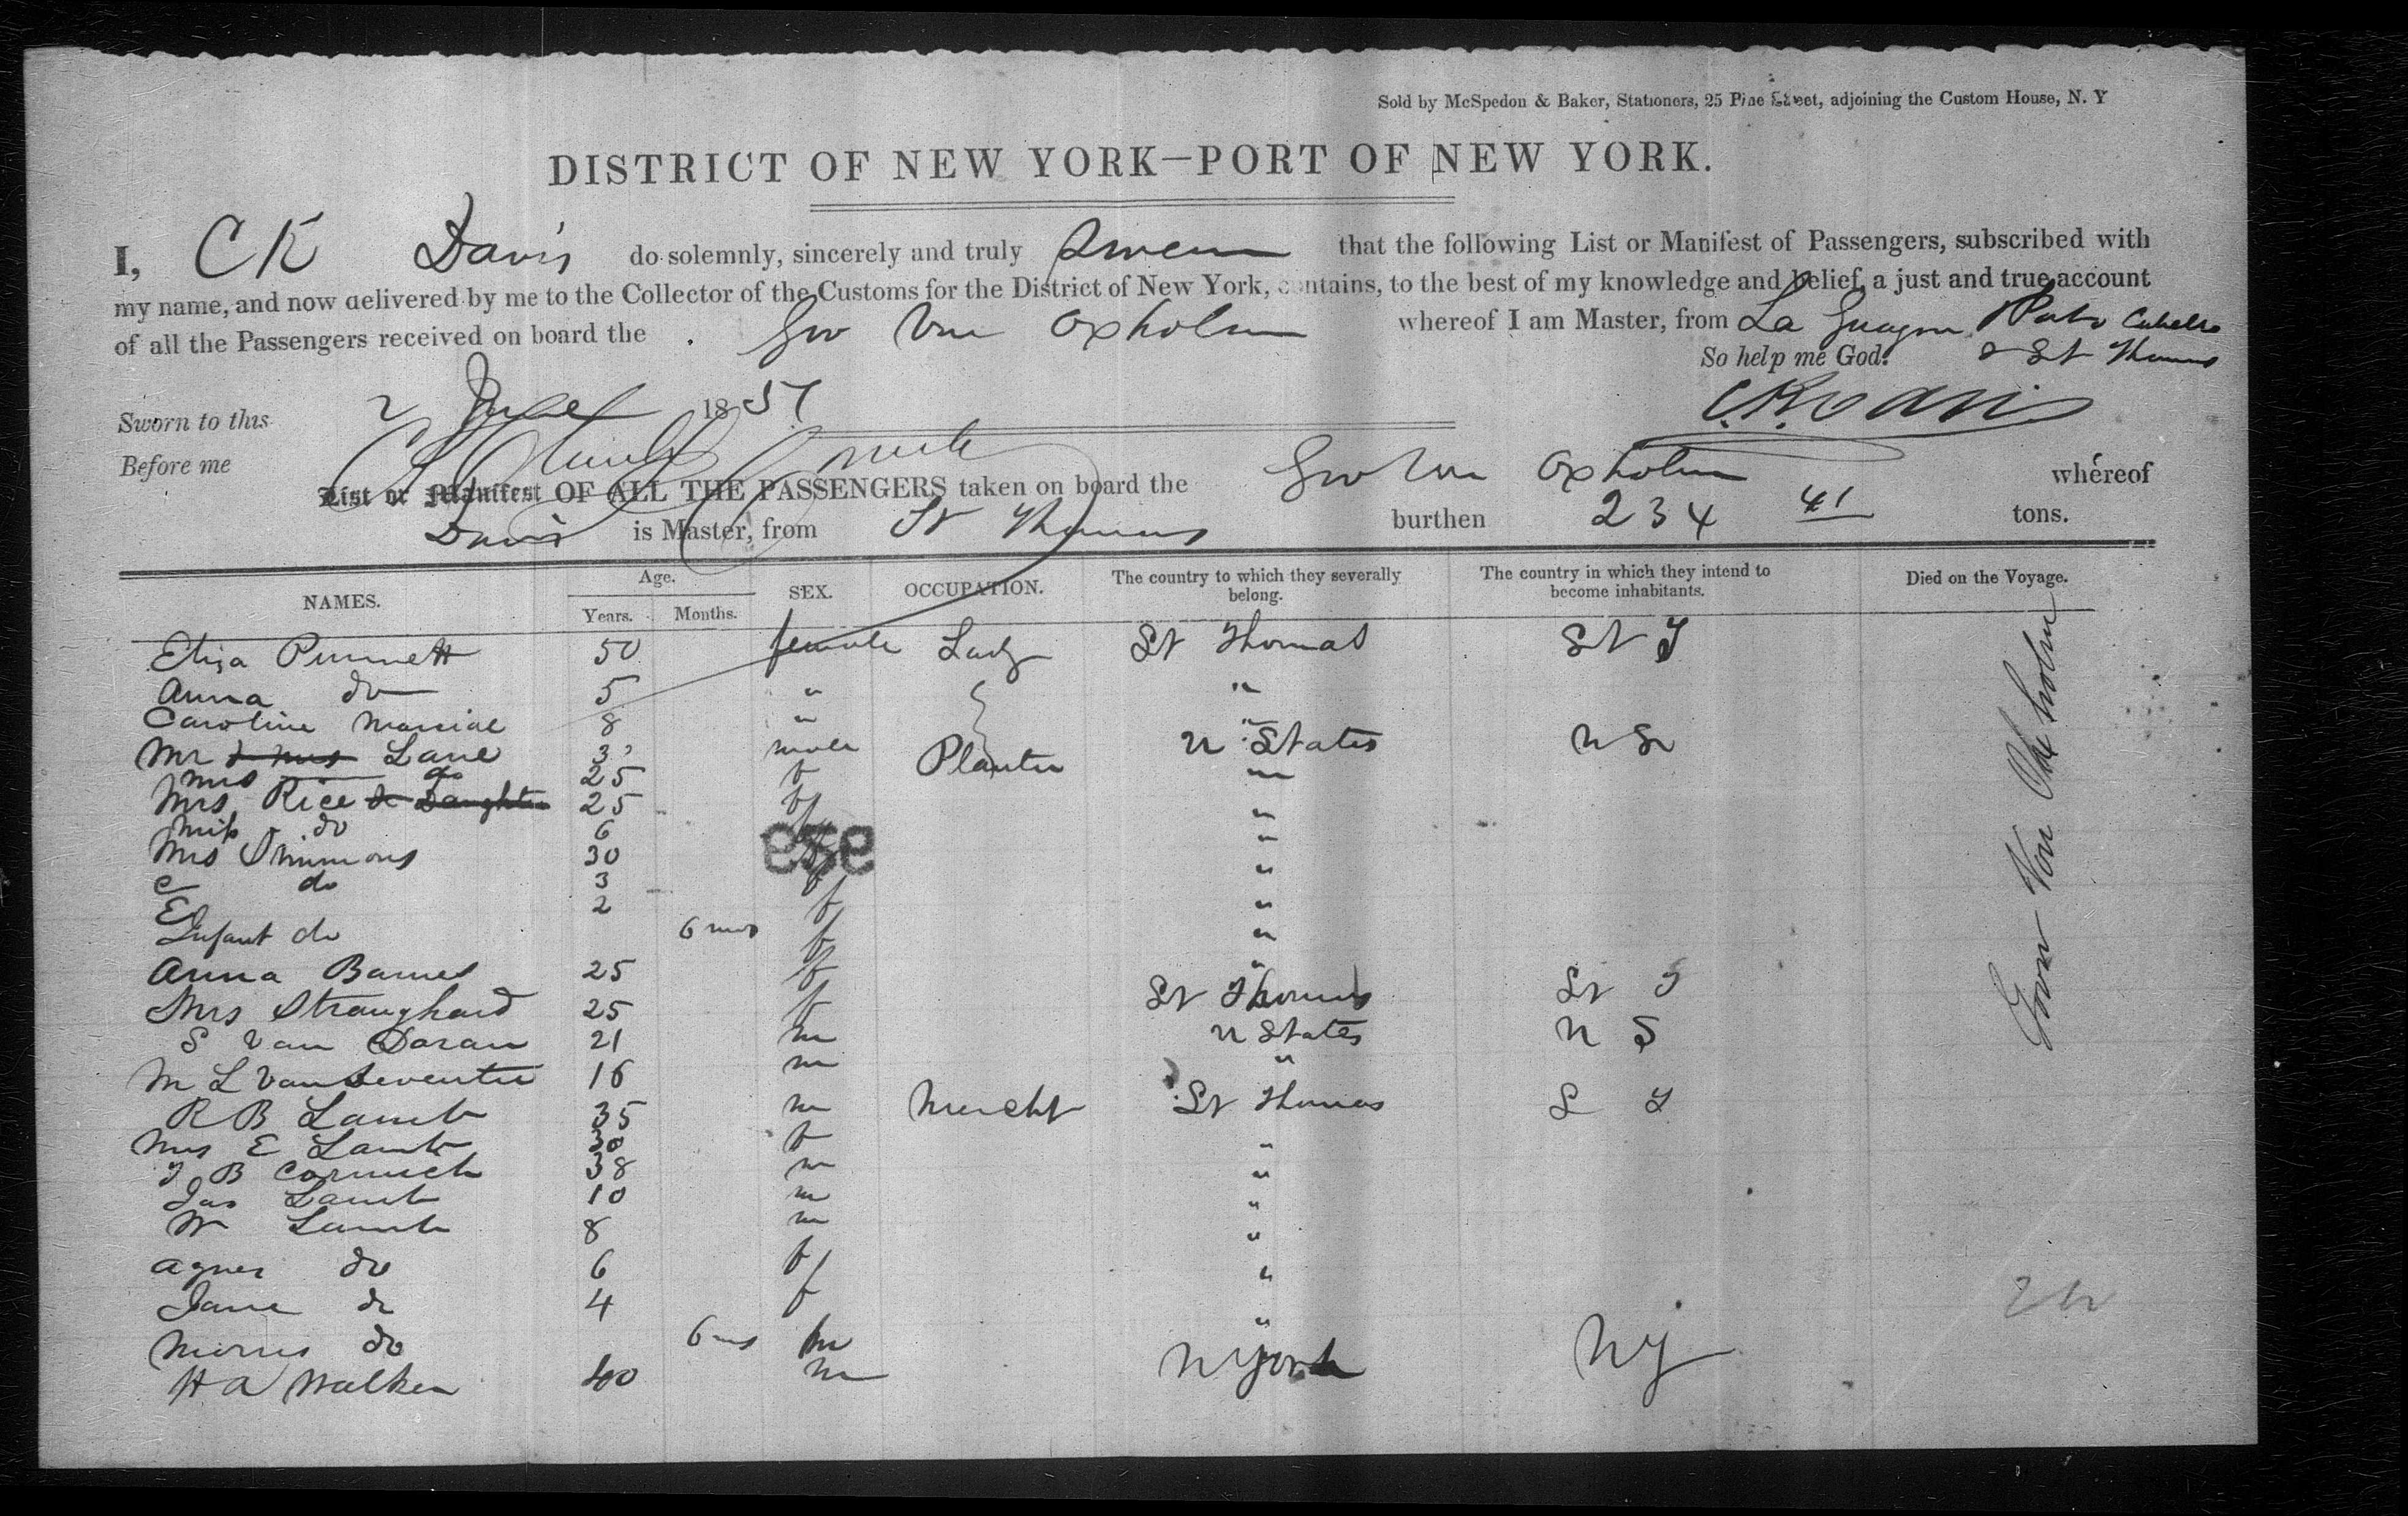 Sold by McSpedon & Baker, Stationers, 25 Pine Street, adjoining the Custom House, N. Y
DISTRICT OF NEW YORK—PORT OF NEW YORK.
I, C K Davis do solemnly, sincerely and truly Swear that the following List or Manifest of Passengers, subscribed with
my name, and now delivered by me to the Collector of the Customs for the District of New York, contains, to the best of my knowledge and belief, a just and true account
of all the Passengers received on board the Gov Von Oxholm whereof I am Master, from La Guayra Porto Cabello
So help me God. & St Thomas
Sworn to this 2 June 1857 C. K. Davis
Before me
List or Manifest OF ALL THE PASSENGERS taken on board the Gov Von Oxholm whereof
Davis is Master, from St Thomas burthen 234 41 tons.
NAMES. Age. Years. Months. SEX. OCCUPATION. The country to which they severally belong. The country in which they intend to become inhabitants. Died on the Voyage.
Eliza 50 female Lady St Thomas St T
Anna do 5 "  "
Caroline 8 " "
Mr & Mrs Lane 3 male Planter U States U S
Mrs do 25 f "
Mrs Rice & Daughter 25 f "
Miss do 6 "
Mrs Simmons 30 "
C do 3 f "
E 2 f "
Infant do 6 mos f "
Anna Barnes 25 f "
Mrs Straughard 25 f St Thomas St T
S Van Doran 21 m U States U S
M L Van Deventer 16 m "
R B Lamb 35 m Mercht St Thomas S T
Mrs E Lamb 30 f "
J B 38 m "
Jas Lamb 10 m "
W Lamb 8 m "
Agnes do 6 f "
Jane do 4 f "
Morris do 6 ms m "
H A Walker 40 m N York N Y
Gov Von Oxholm
959